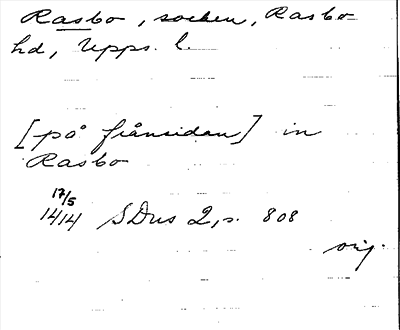 Rasbo, socken, Rasbo
hd, Upps. l.
[på frånsidan] in
Rasbo
17/5
1414 SDns 2, s. 808
orig.